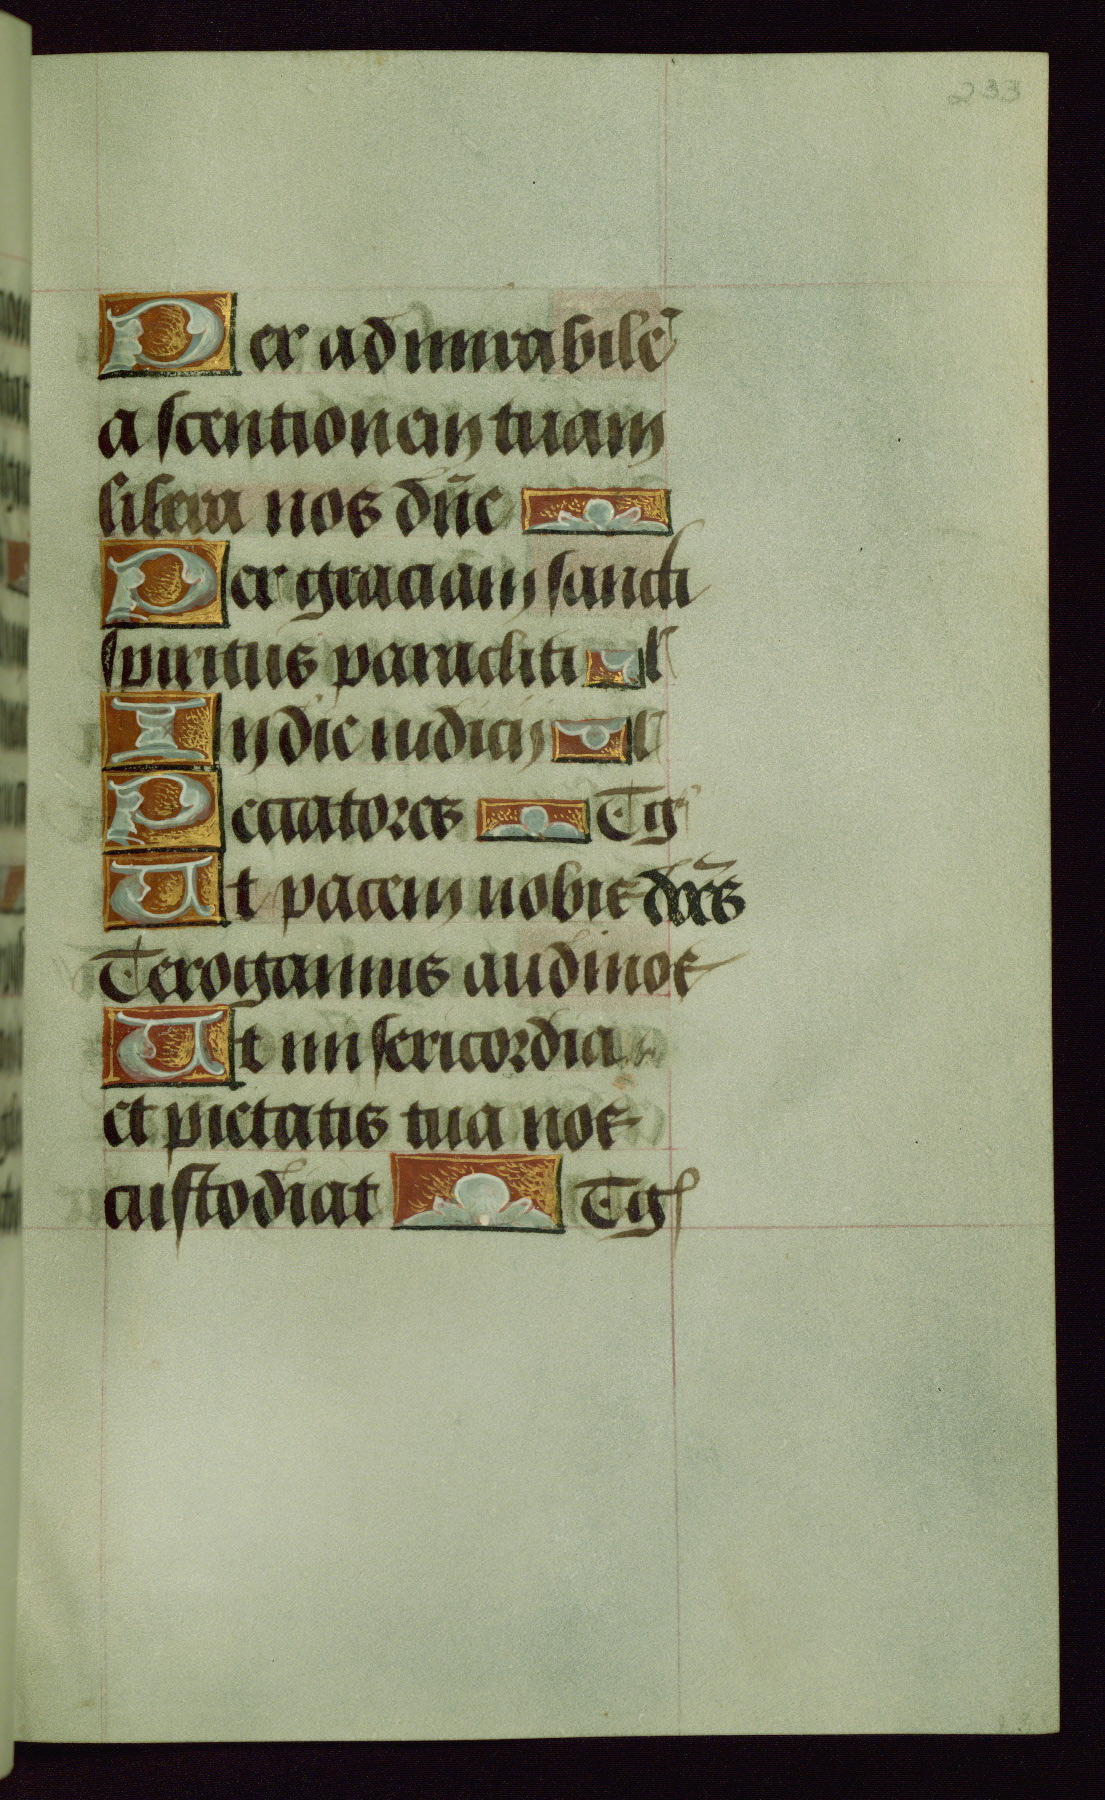 233
Per admirabilē
ascentionem tuam
libera nos dñe
Per graciam sancti
spiritus paracliti l
In die iudicij l
Peccatores Tg
Ut pacem nobis
Te rogamus audi nos
Ut misericordia
et pietatis tua nos
custodiat Tg